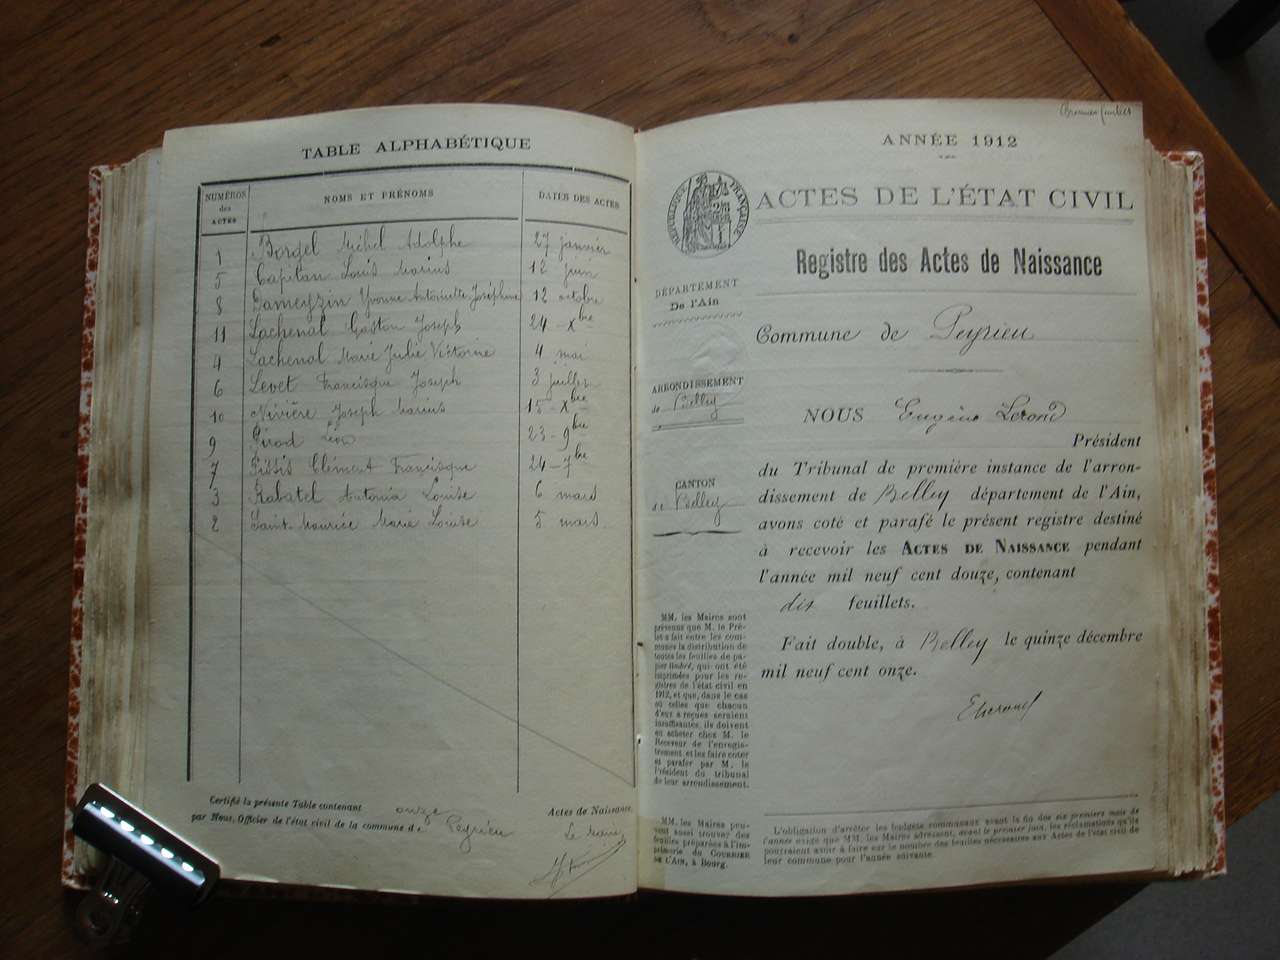 TABLE ALPHABÉTIQUE
NUMÉROS des ACTES NOMS ET PRÉNOMS DATES DES ACTES
1 Borgel Michel Adolphe 27 janvier
5 Capitan Louis Marius 12 juin
8 Dameyzin Yvonne Antoinette Joséphine 12 octobre
11 Lachenal Gaston Joseph 24 - Xbre
4 Lachenal Marie Julie Victorine 4 mai
6 Levet Francisque Joseph 3 juillet
10 Nivière Joseph Marius 15 - Xbre
9 Girod Léon 23 - 9bre
7 Clément Francisque 24 - 7bre
3 Rabatel Antonia Louise 6 mars
2 Saint-Maurice Marie Louise 5 mars
Certifié la présente Table contenant onze Actes de Naissance,
par Nous, Officier de l'état civil de la commune de Peyrieu
Le Maire
ANNÉE 1912
ACTES DE L'ÉTAT CIVIL
RÉPUBLIQUE FRANÇAISE
Registre des Actes de Naissance
DÉPARTEMENT
De l'Ain
Commune de Peyrieu
ARRONDISSEMENT
de Belley
CANTON
de Belley
NOUS Eugène Lerond
Président
du Tribunal de première instance de l'arron-
dissement de Belley département de l'Ain,
avons coté et parafé le présent registre destiné
à recevoir les ACTES DE NAISSANCE pendant
l'année mil neuf cent douze, contenant
dix feuillets.
Fait double, à Belley le quinze décembre
mil neuf cent onze.
ELerond
MM. les Maires sont
prévenus que M. le Pré-
fet a fait entre les com-
munes la distribution de
toutes les feuilles de pa-
pier timbré, qui ont été
imprimées pour les re-
gistres de l'état civil en
1912, et que, dans le cas
où celles que chacun
d'eux a reçues seraient
insuffisantes, ils doivent
en acheter chez M. le
Receveur de l'enregis-
trement et les faire coter
et parafer par M. le
Président du tribunal
de leur arrondissement.
MM. les Maires peu-
vent aussi trouver des
feuilles préparées à l'im-
primerie du COURRIER
DE L'AIN, à Bourg.
L'obligation d'arrêter les budgets communaux avant la fin des six premiers mois de
l'année exige que MM. les Maires adressent, avant le premier juin, les réclamations qu'ils
pourraient avoir à faire sur le nombre des feuilles nécessaires aux Actes de l'état civil de
leur commune pour l'année suivante.